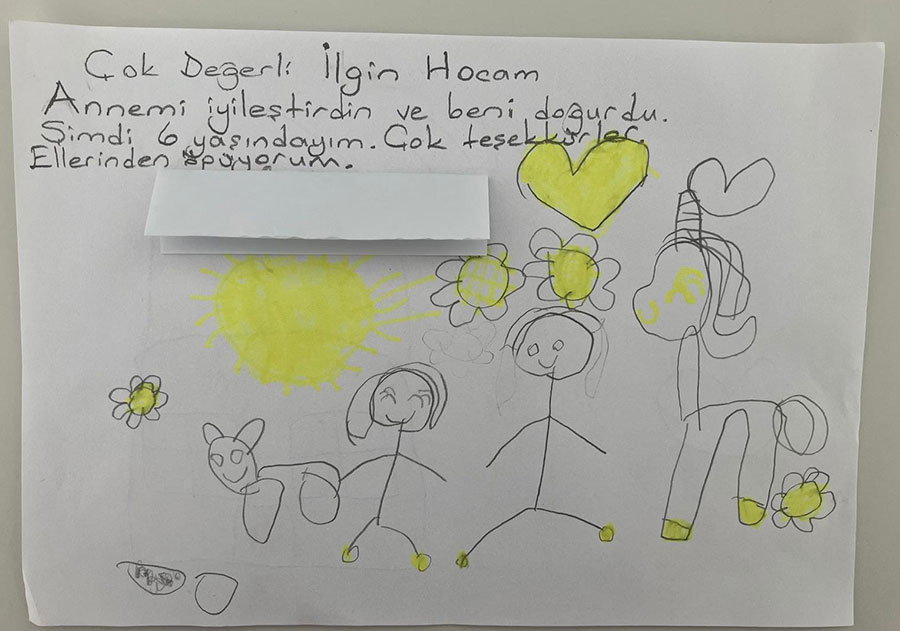 Çok Değerli İlgin Hocam
Annemi iyileştirdin ve beni doğurdu.
Şimdi 6 yaşındayım. Çok teşekkürler.
Ellerinden öpüyorum.